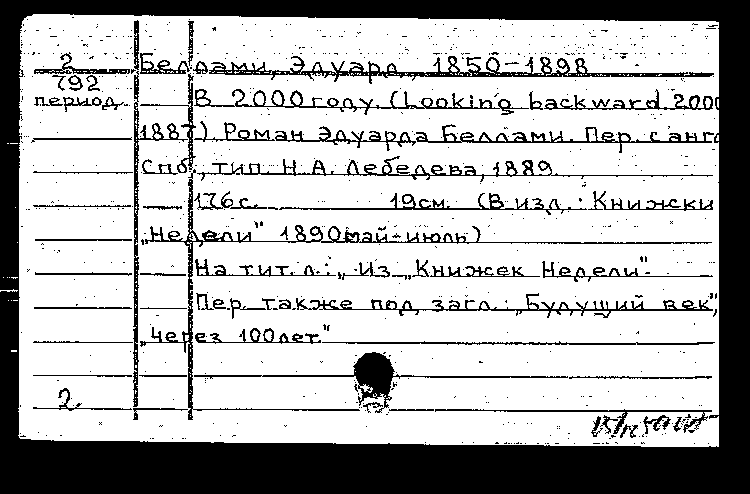 2 Беллами, Эдуард, 1850-1898
792
период. В 2000 году. (Looking backward. 2000
1887). Роман Эдуарда Беллами. Пер. с анг
Спб., тип. Н.А. Лебедева, 1889.
176 с. 19 см. (В изд.: Книжки
„Недели" 1890 май-июль)
На тит. л.: „Из „Книжек Недели".
Пер. также под загл.: „Будущий век",
„Через 100 лет."
2